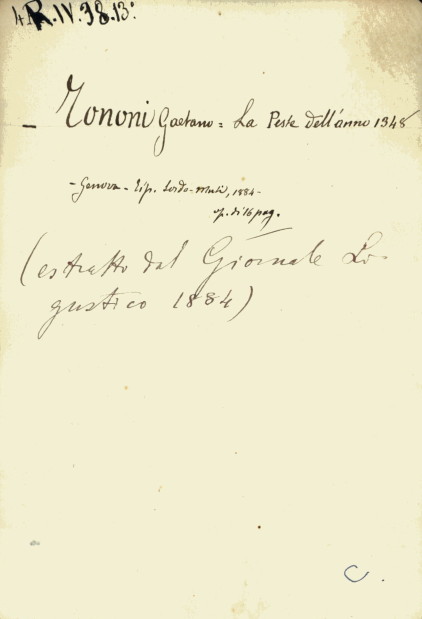 4R.IV.38.13°
- Zononi Gaetano = La Peste dell'anno 1348
- Genova - Tip. Sordo-Muti, 1884 -
op. di 16 pag.
(estratto dal Giornale Li-
gustico 1884)
C.